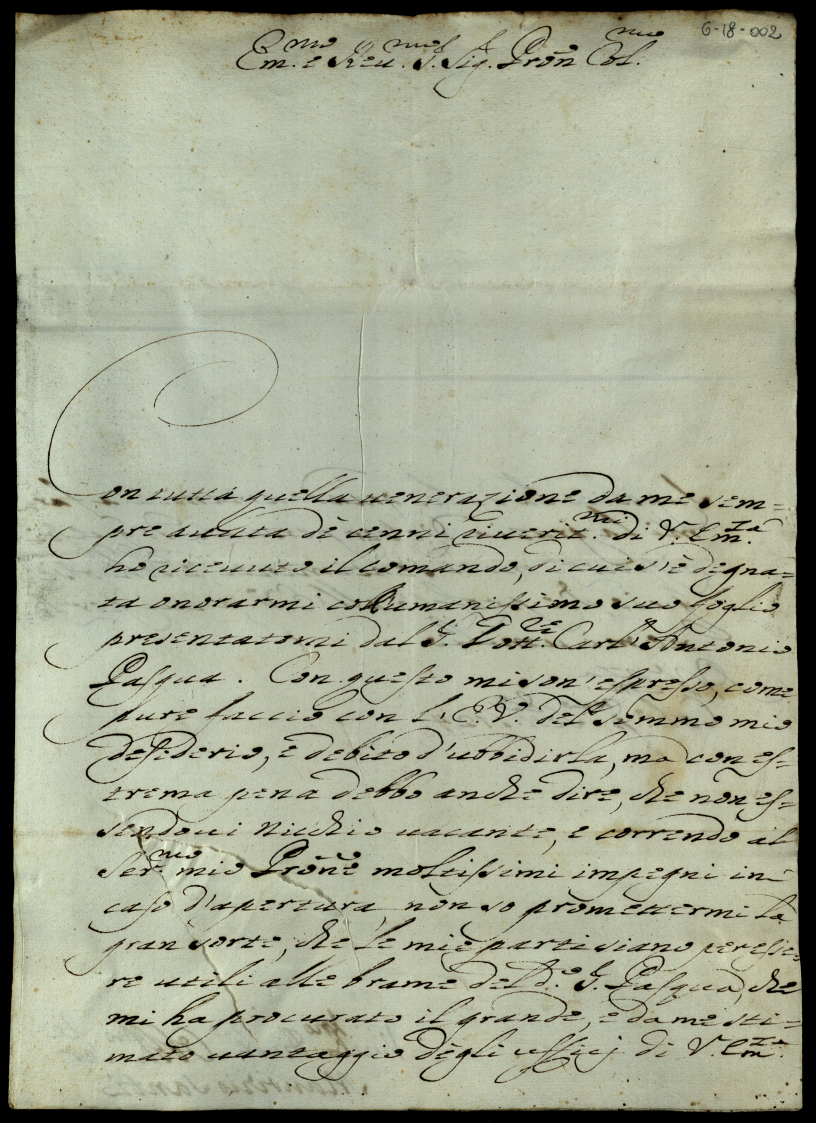 6-18-002
Em.mo e Reu.mo S. Sig. Pron Col.mo
Con tutta quella uenerazione da me sem=
pre auuta de cenni riuerit.mi di V. Em.za
ho riceuuto il comando, di cui s'è degna=
ta onorarmi coll'umanissimo suo foglio
presentatomi dal S. Dott.re Carl' Antonio
Pasqua. Con questo mi son' espresso, come
pure faccio con l' E. V. del sommo mio
desiderio, e debito d'ubbidirla, ma con es=
trema pena debbo anche dire, che non es=
sendoui nicchio uacante, e correndo al
Ser.mo mio Prone moltissimi impegni in
caso d'apertura non so promettermi la
gran sorte, che le mie parti siano per esse=
re utili alle brame del d.o S. Pasqua, che
mi ha procurato il grande, e da me sti=
mato uantaggio degli ufficj di V. Em.za